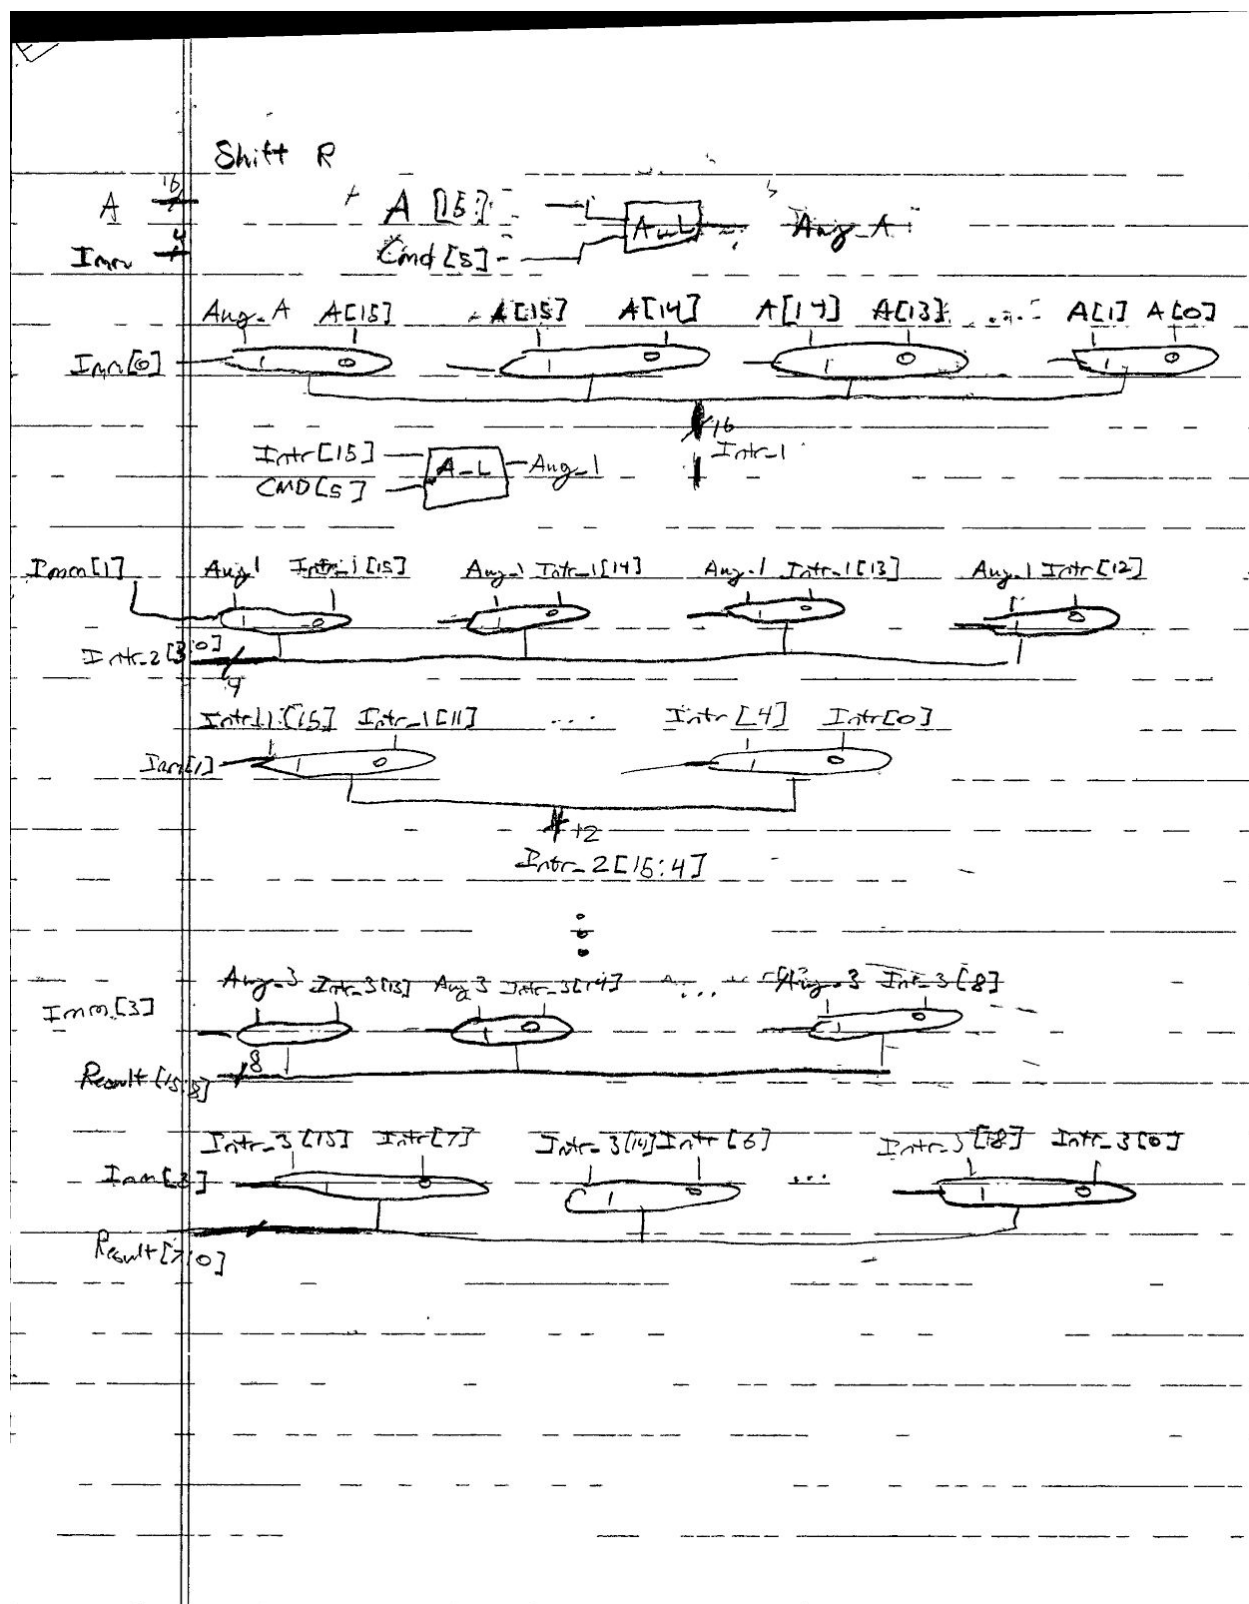 Shift R
A 16
A [15] A_L Aug_A
Imm 4
Cmd [5]
Aug_A A[15] A[15] A[14] A[14] A[13] ... A[1] A[0]
Imm[0] 1 0 1 0 1 0 1 0
16
Intr_1
Intr[15] A_L Aug_1
CMD[5]
Imm[1] Aug 1 Intr_1[15] Aug_1 Intr_1[14] Aug_1 Intr_1[13] Aug_1 Intr[12]
1 0 1 0 1 0 1 0
Intr_2[3:0]
4
[15] Intr_1[11] ... Intr[4] Intr[0]
Imm[1] 1 0 1 0
12
Intr_2[15:4]
Aug_3 Intr_3[15] Aug 3 Intr_3[14] ... Aug_3 Int_3[8]
Imm[3]
1 0 1 0
8
Result[15:8]
Intr_3[15] Intr[7] Intr_3[14] Intr[6] ... Intr_3[8] Intr_3[0]
Imm[3] 1 0 1 0 1 0
Result[7:0]